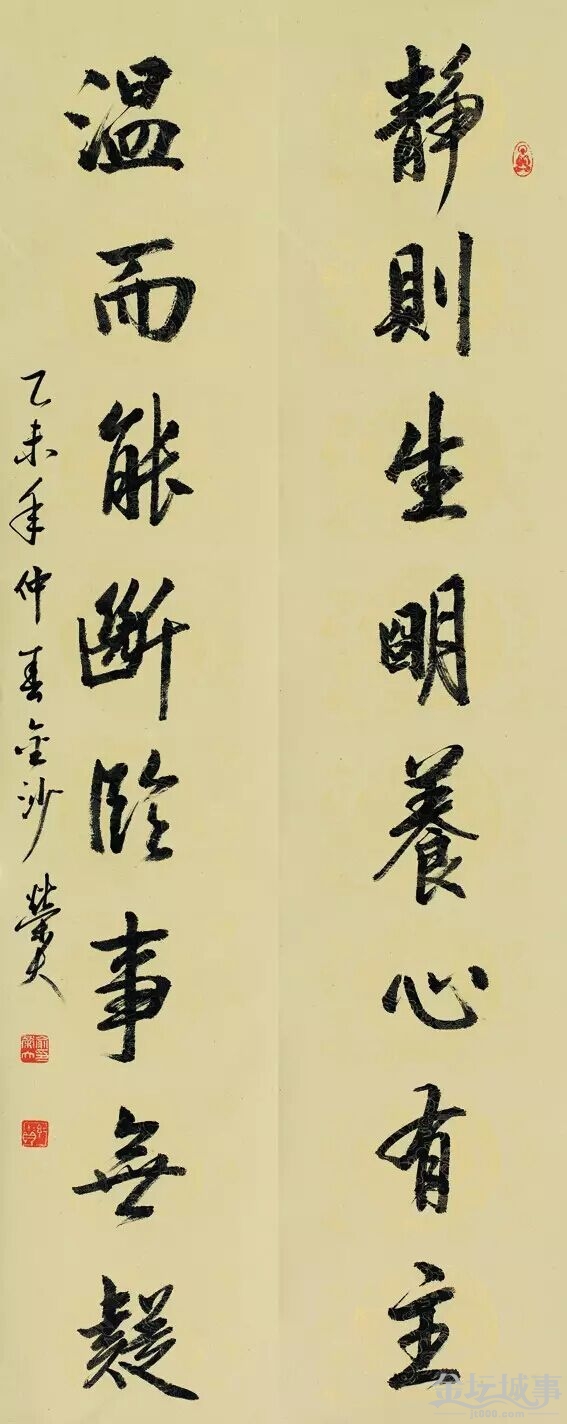 靜則生明養心有主
溫而能斷臨事無疑
乙未年仲春金沙榮大
金坛城事
jt000.com